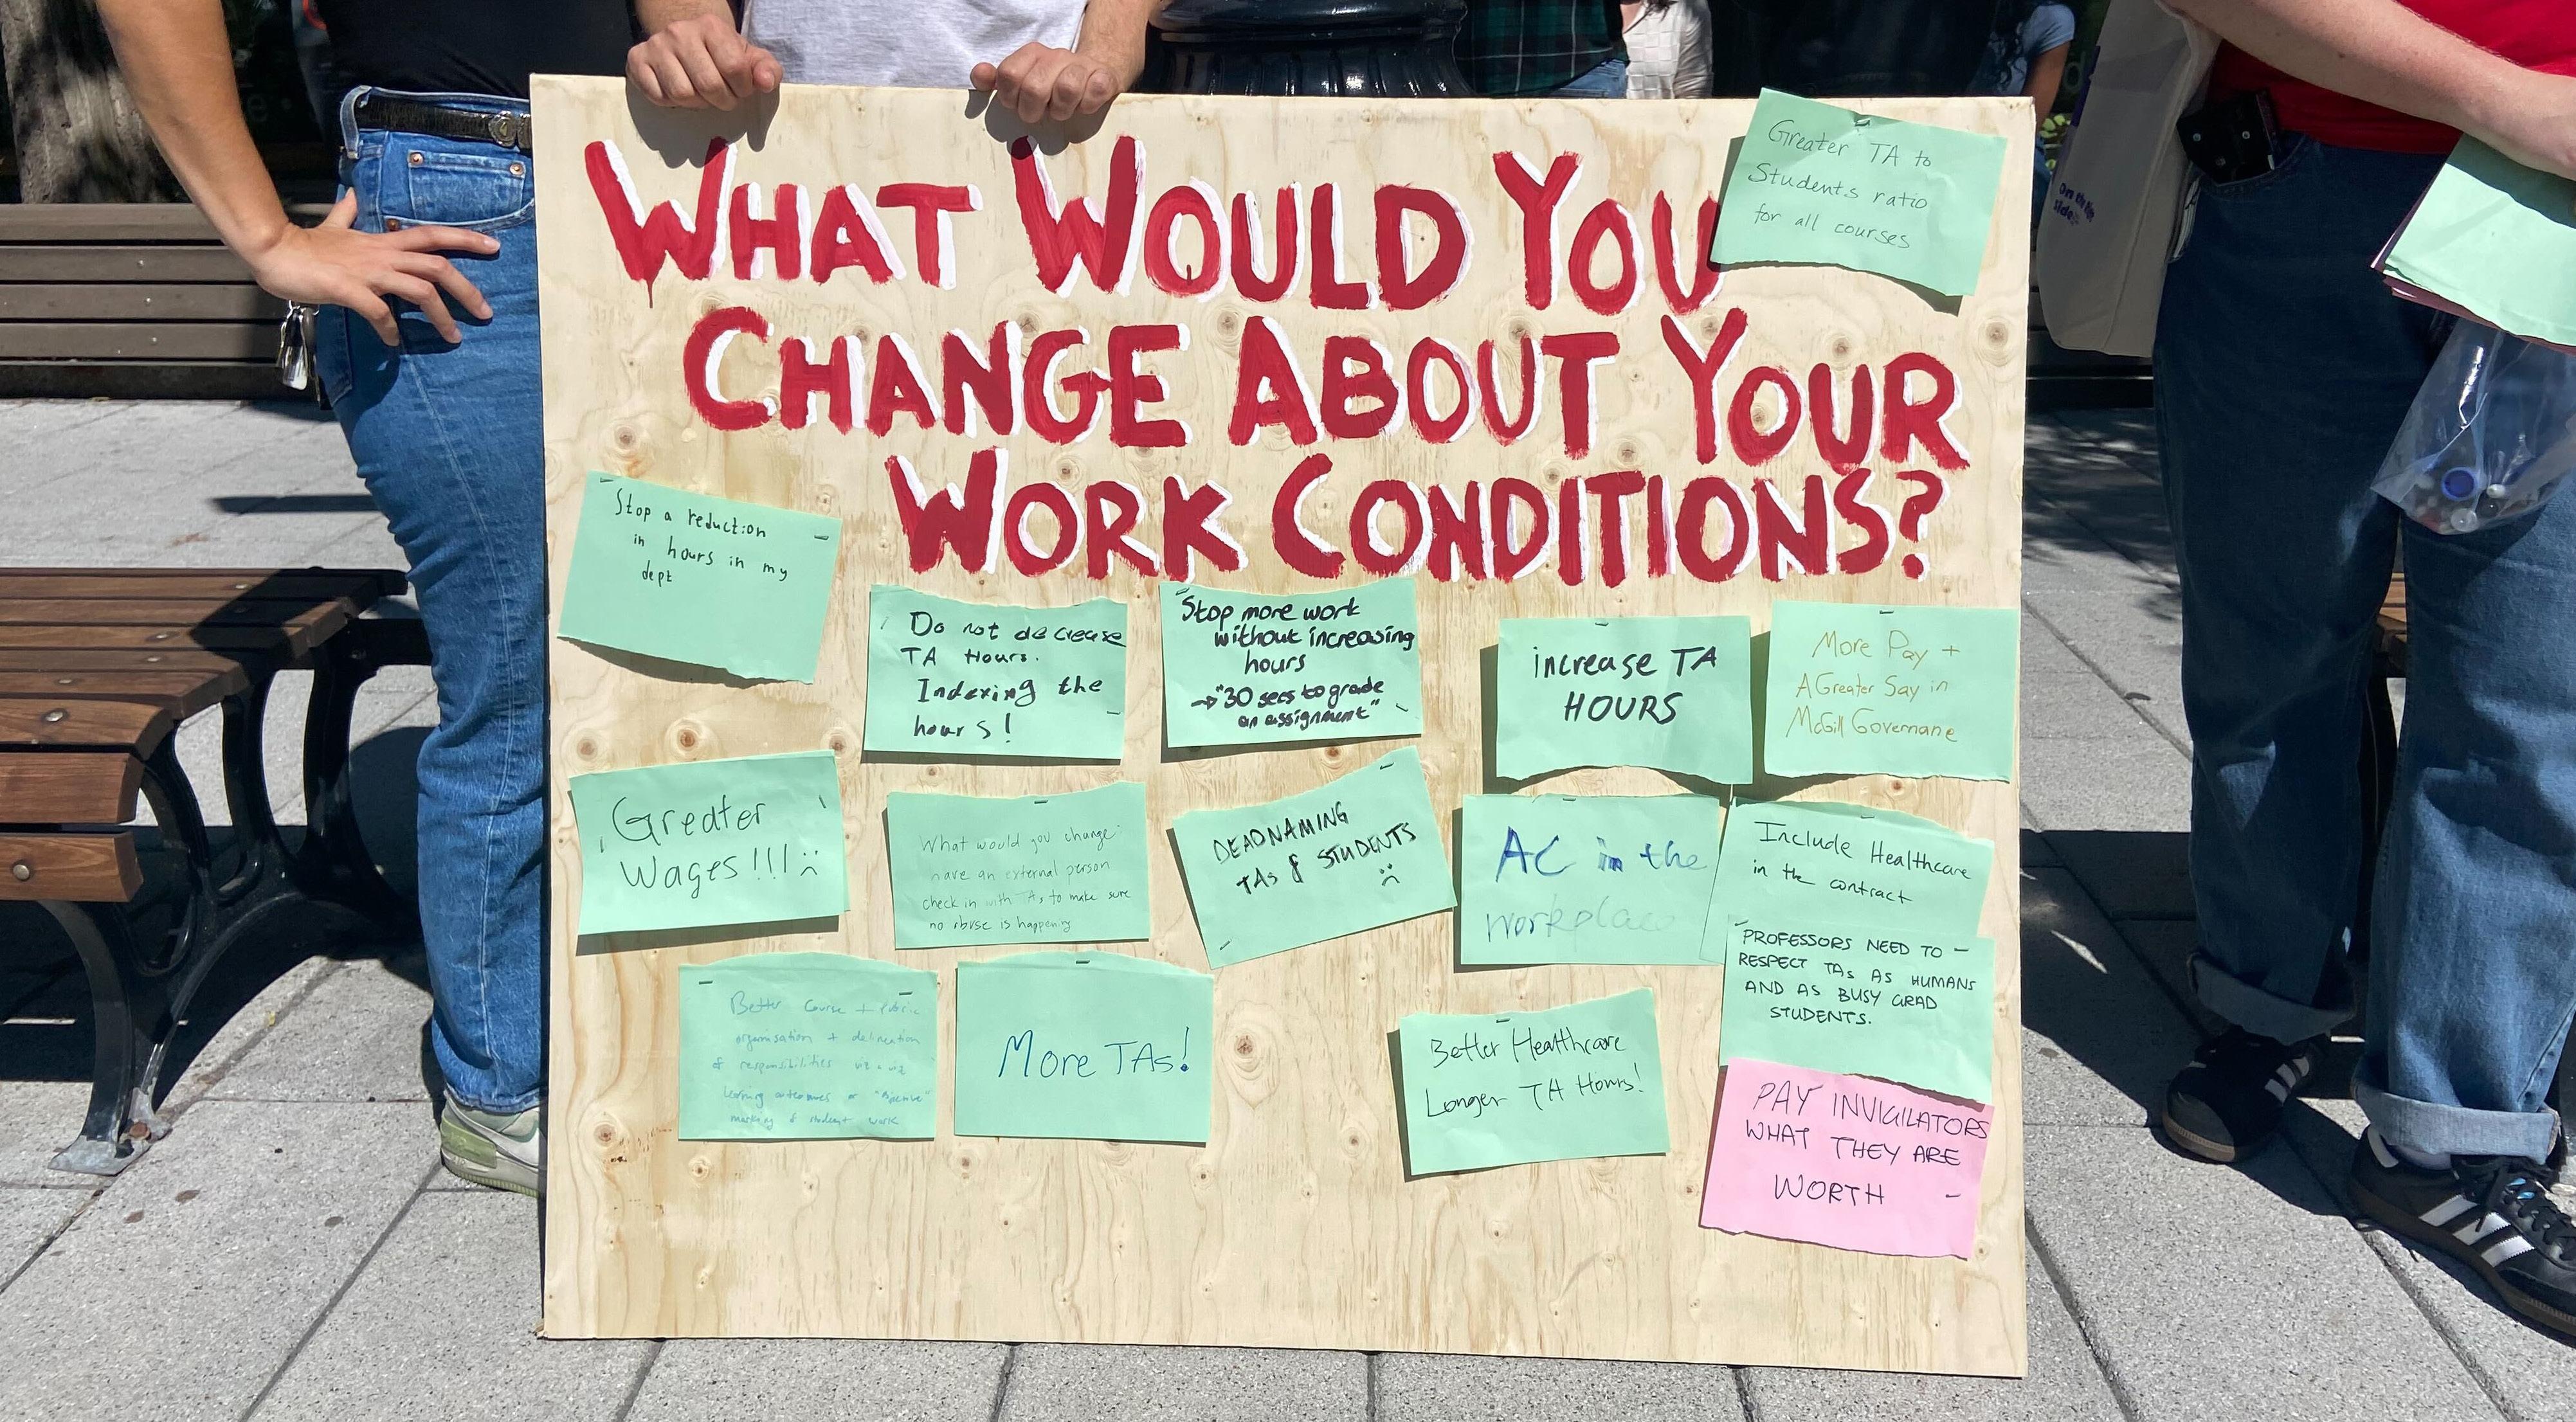 WHAT WOULD YOU
CHANGE ABOUT YOUR
WORK CONDITIONS?
Greater TA to
Students ratio
for all courses
Stop a reduction
in hours in my
dept
Do not decrease
TA Hours.
Indexing the
hours!
Stop more work
without increasing
hours
→"30 secs to grade
an assignment"
increase TA
HOURS
More Pay +
A Greater Say in
McGill Governane
Greater
Wages!!! :(
What would you change:
have an external person
check in with TAs to make sure
no abuse is happening
DEADNAMING
TAs & STUDENTS
:(
AC in the
workplace
Include Healthcare
in the contract
PROFESSORS NEED TO
RESPECT TAs AS HUMANS
AND AS BUSY GRAD
STUDENTS.
Better Course + rubric
organisation + delineation
of responsibilities viz a viz
learning outcomes or
marking of student work
More TAs!
Better Healthcare
Longer TA Hours!
PAY INVIGILATORS
WHAT THEY ARE
WORTH